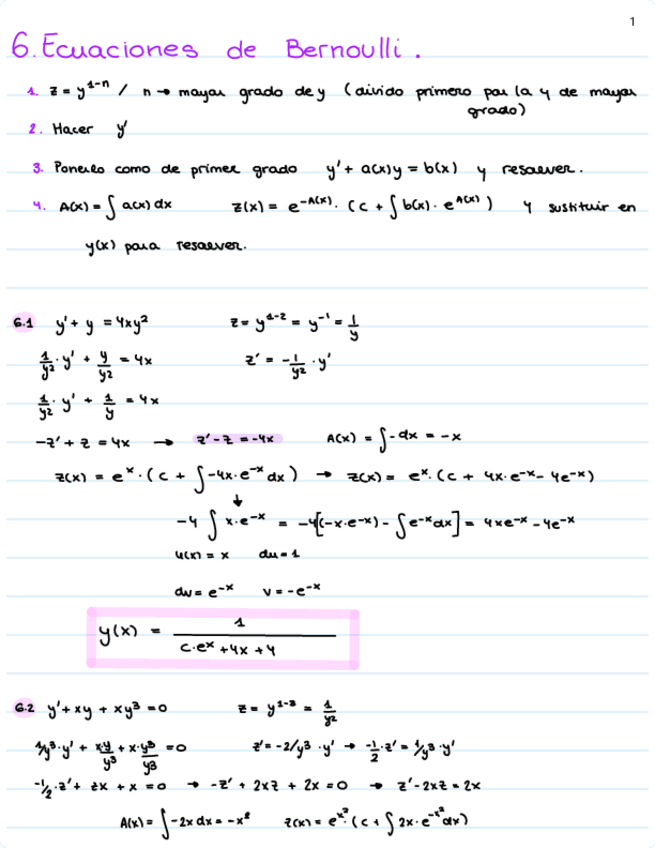 1
6. Ecuaciones de Bernoulli.
1. z = y^{1-n} / n → mayor grado de y (divido primero por la y de mayor grado)
2. Hacer y'
3. Ponerlo como de primer grado y' + a(x)y = b(x) y resolver.
4. A(x) = ∫ a(x) dx z(x) = e^{-A(x)}. (c + ∫ b(x) · e^{A(x)}) y sustituir en
y(x) para resolver.
6.1 y' + y = 4xy² z = y^{1-2} = y^{-1} = 1/y
1/y² · y' + y/y² = 4x z' = -1/y² · y'
1/y² · y' + 1/y = 4x
-z' + z = 4x → z' - z = -4x A(x) = ∫ -dx = -x
z(x) = e^x · (c + ∫ -4x·e^{-x} dx) → z(x) = e^x. (c + 4x·e^{-x} - 4e^{-x})
↓
-4 ∫ x·e^{-x} = -4[(-x·e^{-x}) - ∫ e^{-x} dx] = 4xe^{-x} - 4e^{-x}
u(x) = x du = 1
dv = e^{-x} v = -e^{-x}
y(x) = 1 / (c·e^x + 4x + 4)
6.2 y' + xy + xy³ = 0 z = y^{1-3} = 1/y²
1/y³·y' + x·y/y³ + x·y³/y³ = 0 z' = -2/y³ · y' → -1/2·z' = 1/y³·y'
-1/2·z' + zx + x = 0 → -z' + 2xz + 2x = 0 → z' - 2xz = 2x
A(x) = ∫ -2x dx = -x² z(x) = e^{x²}·(c + ∫ 2x·e^{-x²} dx)